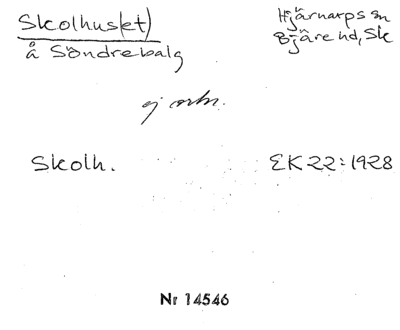 Skolhus(et)
Hjärnarps sn
å Söndrebalg
Bjäre hd, Sk
ej ortn.
Skolh.
EK22:1928
Nr 14546